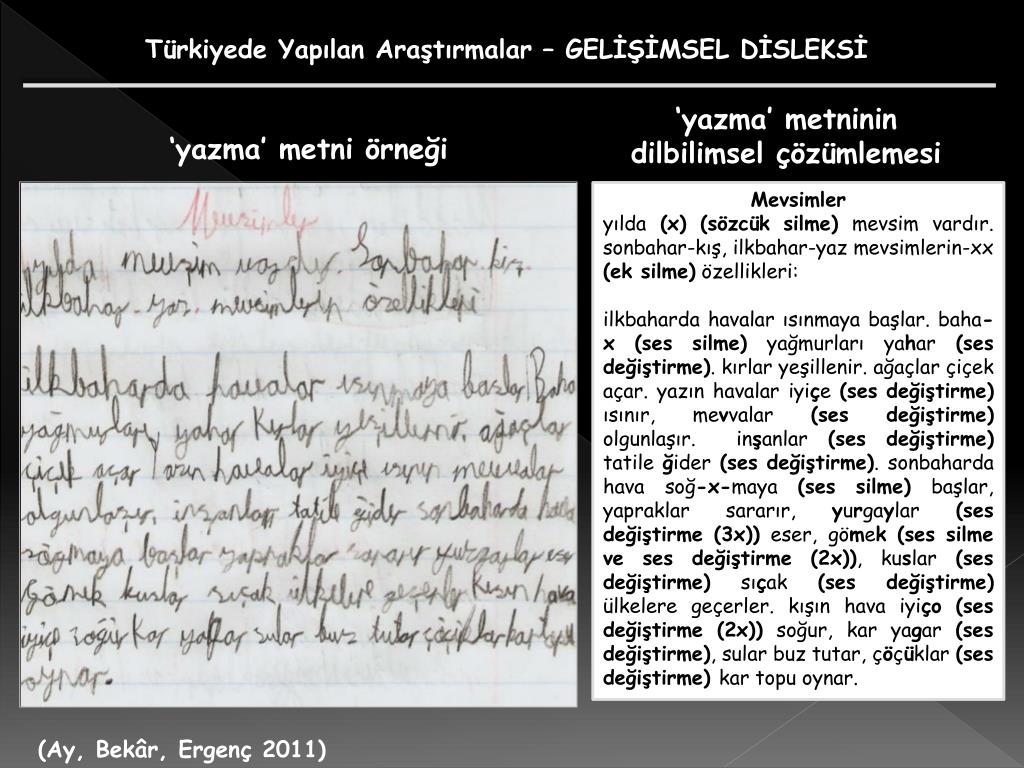 Türkiyede Yapılan Araştırmalar – GELİŞİMSEL DİSLEKSİ
‘yazma’ metni örneği
Mevsimler
yılda mevzim vardır. Sonbahar. kış.
ilkbahar. yaz. mevsimlerin özellikleri
ilkbaharda havalar ısınmaya başlar Baha
yağmurları yahar Kırlar yeşillenir. ağaçlar
çiçek açar Yazın havalar iyiçe ısınır mevvalar
olgunlaşır. inşanlar tatile ğider sonbaharda hava
soğmaya başlar yapraklar sararır yurgaylar eser
Gömek kuslar sıçak ülkelere geçerler Kışın hava
iyiço soğur Kar yagar sular buz tutar çöçüklar kar topu
oynar.
‘yazma’ metninin
dilbilimsel çözümlemesi
Mevsimler
yılda (x) (sözcük silme) mevsim vardır.
sonbahar-kış, ilkbahar-yaz mevsimlerin-xx
(ek silme) özellikleri:
ilkbaharda havalar ısınmaya başlar. baha-
x (ses silme) yağmurları yahar (ses
değiştirme). kırlar yeşillenir. ağaçlar çiçek
açar. yazın havalar iyiçe (ses değiştirme)
ısınır, mevvalar (ses değiştirme)
olgunlaşır. inşanlar (ses değiştirme)
tatile ğider (ses değiştirme). sonbaharda
hava soğ-x-maya (ses silme) başlar,
yapraklar sararır, yurgaylar (ses
değiştirme (3x)) eser, gömek (ses silme
ve ses değiştirme (2x)), kuslar (ses
değiştirme) sıçak (ses değiştirme)
ülkelere geçerler. kışın hava iyiço (ses
değiştirme (2x)) soğur, kar yagar (ses
değiştirme), sular buz tutar, çöçüklar (ses
değiştirme) kar topu oynar.
(Ay, Bekâr, Ergenç 2011)